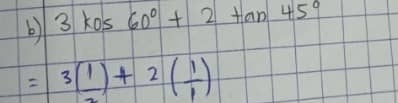 b) 3 kos 60° + 2 tan 45°
= 3(1/2) + 2(1/1)